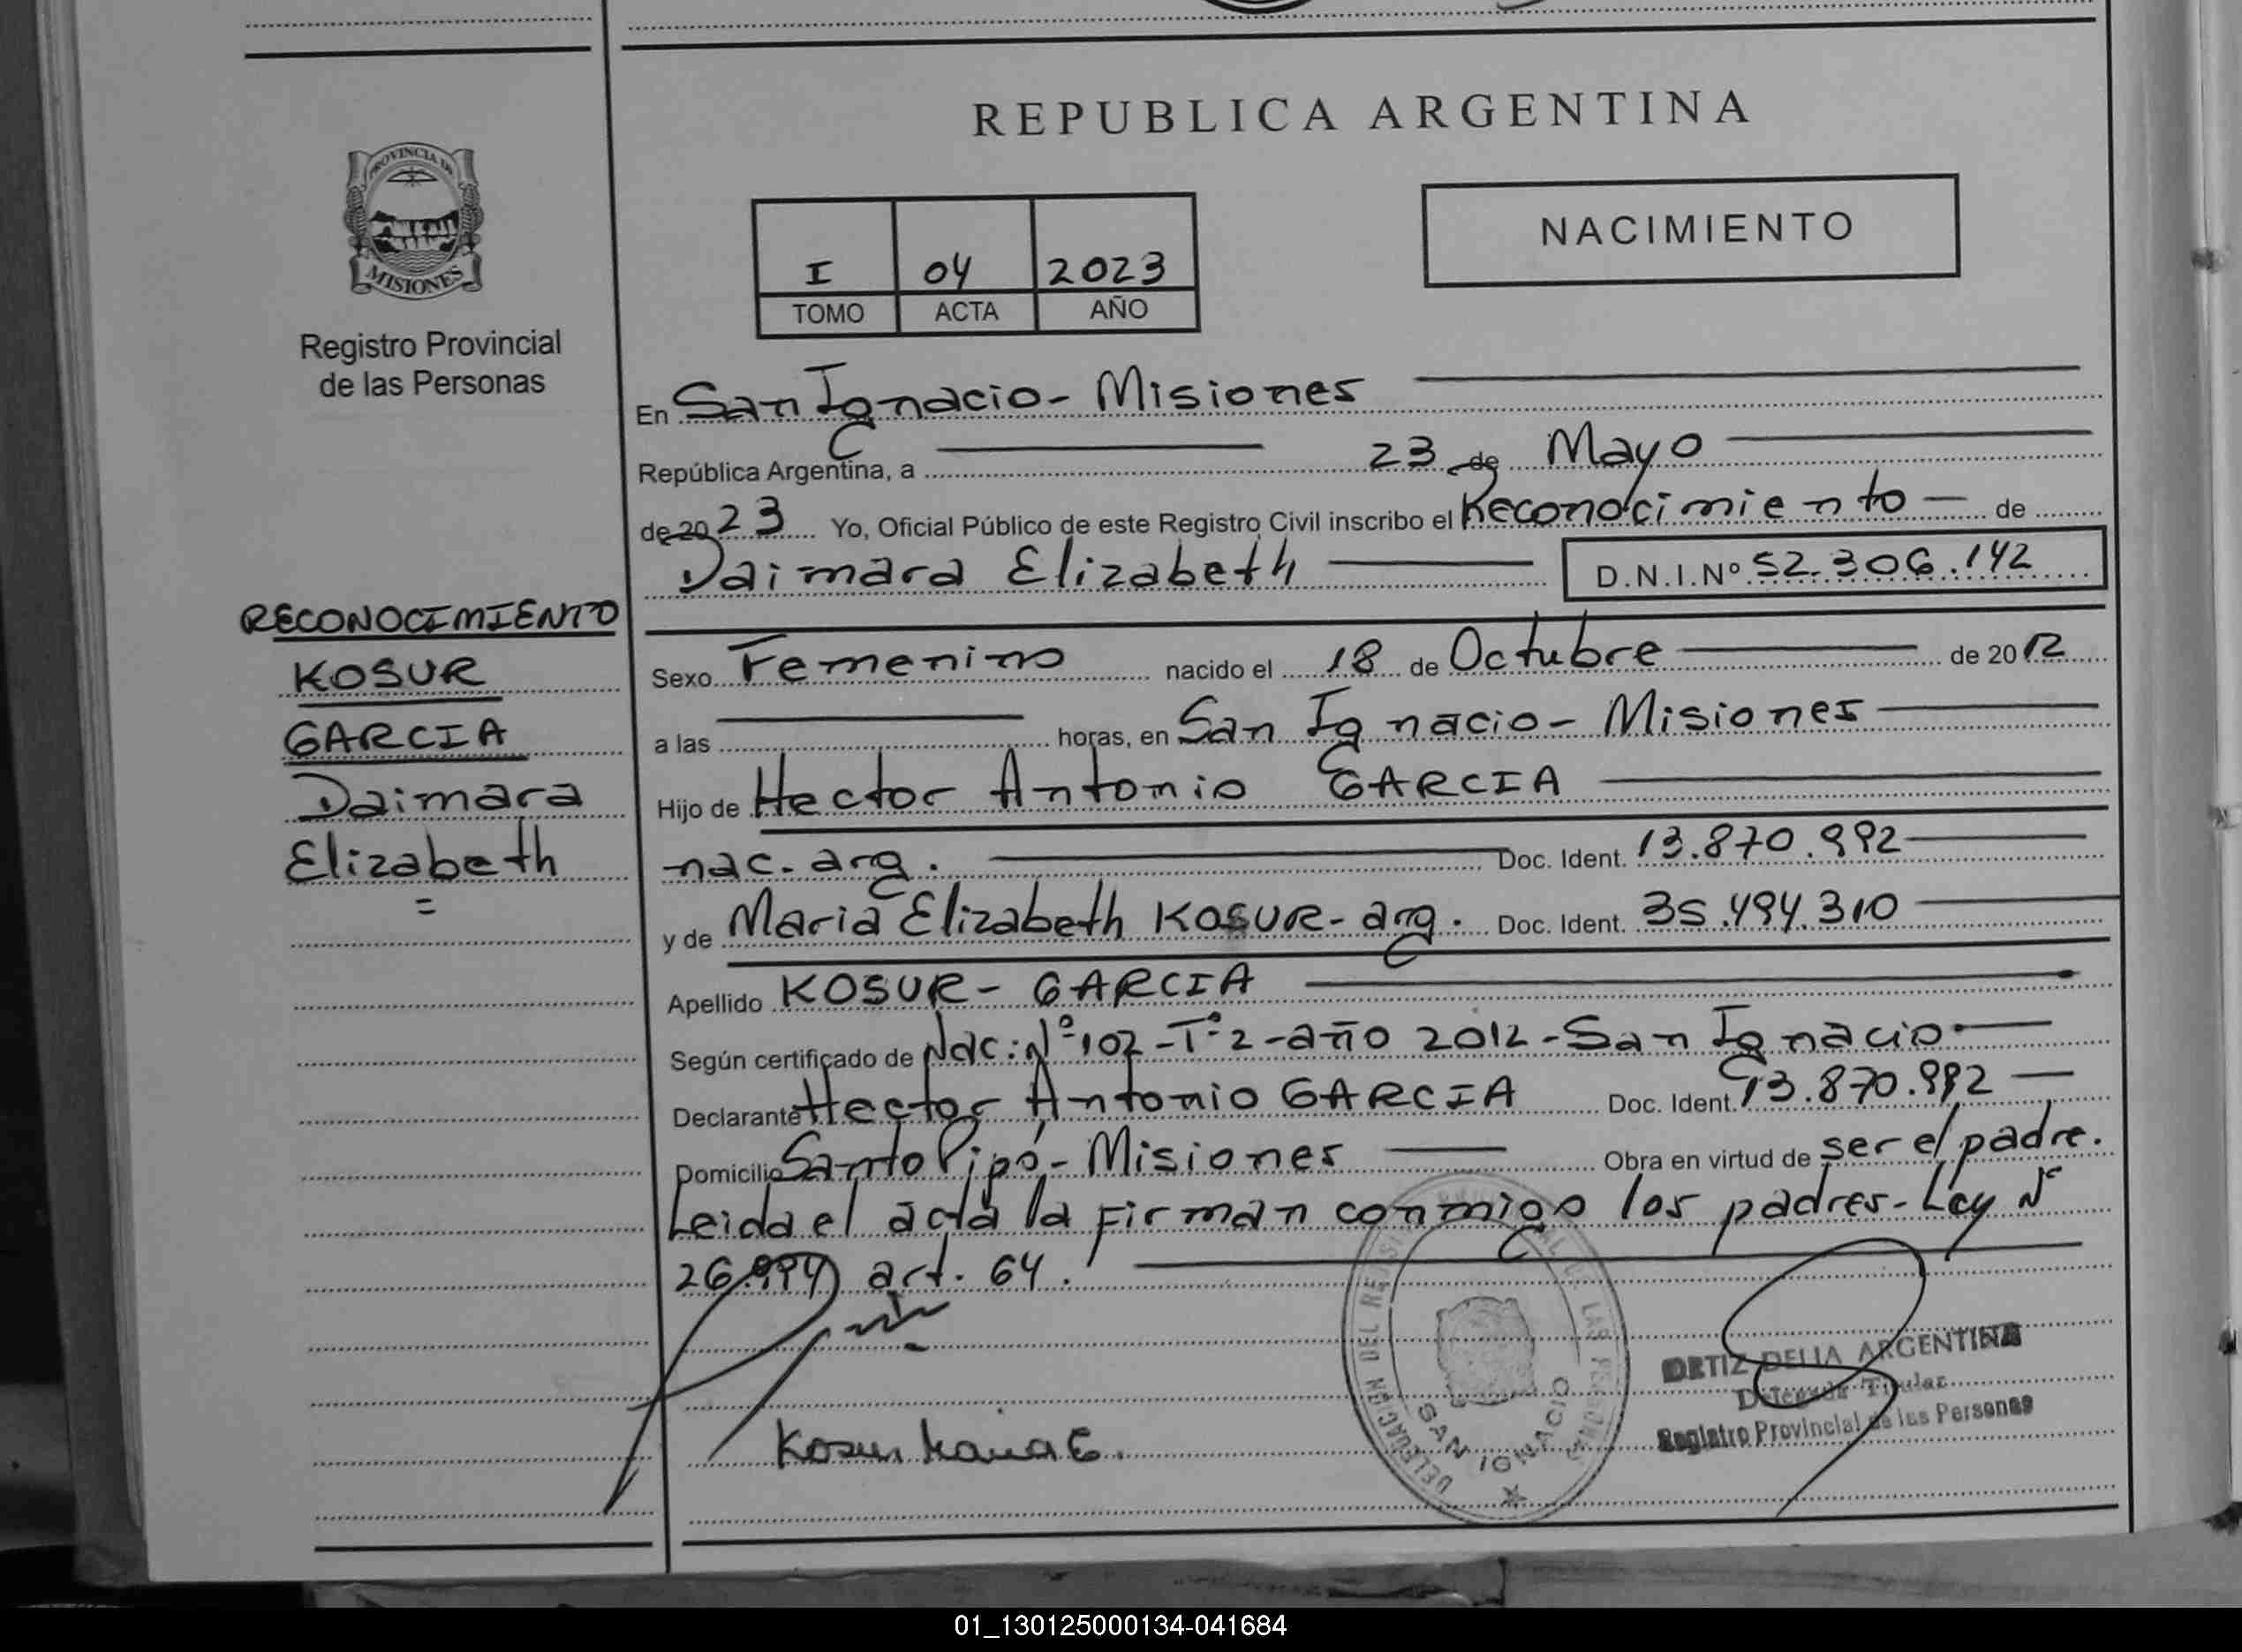 REPUBLICA ARGENTINA
PROVINCIA DE
MISIONES
Registro Provincial
de las Personas
NACIMIENTO
I 04 2023
TOMO ACTA AÑO
En San Ignacio - Misiones
República Argentina, a 23 de Mayo
de 20 23 Yo, Oficial Público de este Registro Civil inscribo el Reconocimiento - de
Daimara Elizabeth D.N.I.Nº 52.306.142
RECONOCIMIENTO
KOSUR
GARCIA
Daimara
Elizabeth
=
Sexo Femenino nacido el 18 de Octubre de 2012
a las horas, en San Ignacio - Misiones
Hijo de Hector Antonio GARCIA
nac. arg. Doc. Ident. 13.870.992
y de Maria Elizabeth KOSUR - arg. Doc. Ident. 35.494.310
Apellido KOSUR - GARCIA
Según certificado de Nac: Nº 102 - Tº 2 - año 2012 - San Ignacio
Declarante Hector Antonio GARCIA Doc. Ident. 13.870.992
Domicilio Santo Pipó - Misiones Obra en virtud de ser el padre.
Leida el acta la firman conmigo los padres - Ley Nº
26.994 art. 64.
Kosur Maria E.
DELEGACION DEL REGISTRO PROVINCIAL DE LAS PERSONAS
SAN IGNACIO
ORTIZ DELIA ARGENTINA
Delegada Titular
Registro Provincial de las Personas
01_130125000134-041684